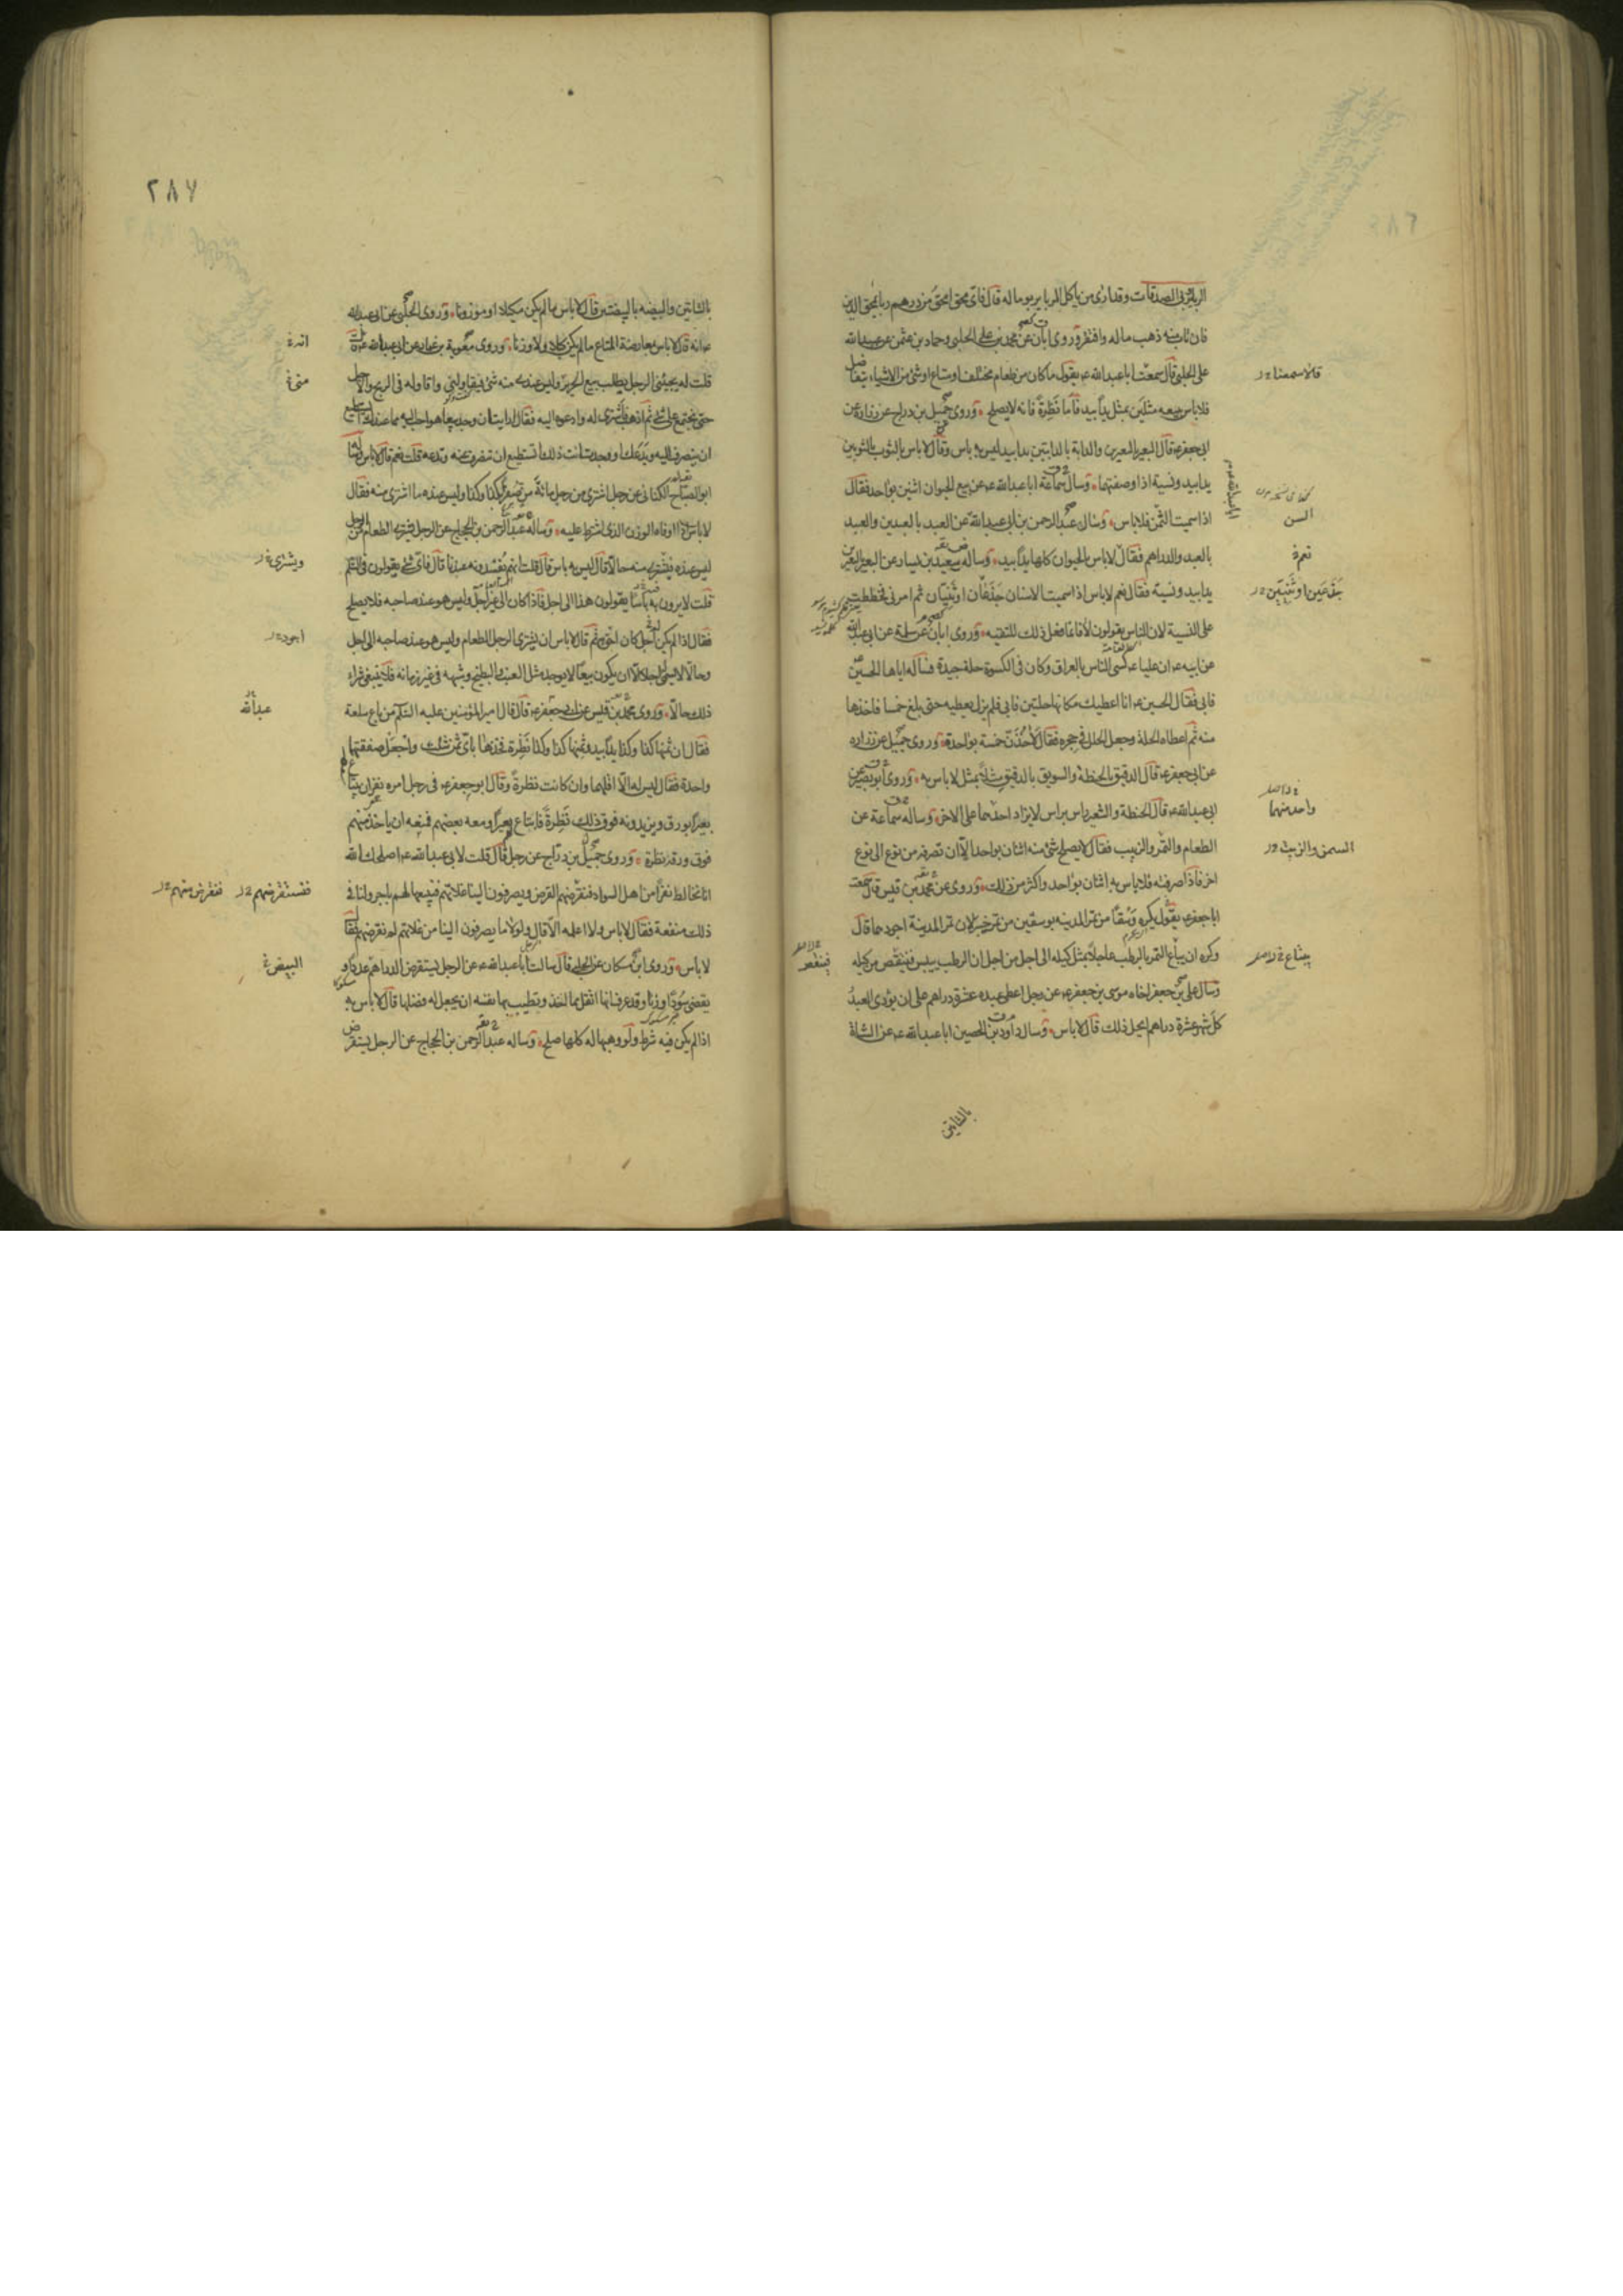 الربا ويربى الصدقات وقد ارى من ياكل الربا يربو ماله قال فاى محق امحق من درهم ربا يمحق الدين
فان تاب منه ذهب ماله وافتقر وروى ابان عن محمد بن على الحلبى وحماد بن عثمن عن عبيدالله
على الحلبى قال سمعت اباعبدالله ع يقول ما كان من طعام مختلف او متاع او شئ من الاشياء يتفاضل
فلا باس ببيعه مثلين بمثل يدا بيد فاما نظرة فانه لا يصلح وروى جميل بن دراج عن زرارة عن
ابى جعفر ع قال البعير بالبعيرين والدابة بالدابتين يدا بيد ليس به باس وقال لا باس بالثوب بالثوبين
يدا بيد ونسية اذا وصفتهما وسال سماعة اباعبدالله ع عن بيع الحيوان اثنين بواحد فقال
اذا سميت الثمن فلا باس وسال عبدالرحمن بن ابى عبدالله عن العبد بالعبدين والعبد
بالعبد والدراهم فقال لا باس بالحيوان كلها يدا بيد وساله سعيد بن يسار عن البعير بالبعيرين
يدا بيد ونسية فقال نعم لا باس اذا سميت الاسنان جذعان او ثنيان ثم امرنى فخططت
على النسية لان الناس يقولون لا فانما فعل ذلك للتقيه وروى ابان عن سلمة عن ابى عبدالله
عن ابيه ع ان عليا ع كسى الناس بالعراق وكان فى الكسوة حلة جيدة فساله اياها الحسين
فابى فقال الحسين ع انا اعطيك مكانها حلتين فابى فلم يزل يعطيه حتى بلغ خمسا فاخذها
منه ثم اعطاه الحلة وجعل الحلل فى حجره فقال لاخذن خمسة بواحدة وروى جميل عن زراره
عن ابى جعفر ع قال الدقيق بالحنطة والسويق بالدقيق مثلا بمثل لا باس به وروى ابو بصير عن
ابى عبدالله ع قال الحنطة والشعير راس براس لا يزاد احدهما على الاخر وساله سماعة عن
الطعام والتمر والزبيب فقال لا يصلح شئ منه اثنان بواحد الا ان تصرفه من نوع الى نوع
اخر فاذا صرفته فلا باس به اثنان بواحد واكثر من ذلك وروى عن محمد بن قيس قال سمعت
اباجعفر ع يقول يكره وسقا من تمر المدينه بوسقين من تمر خيبر لان تمر المدينة اجودهما قال
وكره ان يباع التمر بالرطب عاجلا بمثل كيله الى اجل من اجل ان الرطب ييبس فينقص من كيله
وسال على بن جعفر اخاه موسى بن جعفر ع عن رجل اعطى عبده عشرة دراهم على ان يؤدى العبد
كل شهر عشرة دراهم ايحل ذلك قال لا باس وسال داود بن الحصين اباعبدالله ع عن الشاة
بالشاتين
قالا سمعنا
السن
جذعين او ثنيين
واحد منهما
السمن والزبيب
يبتاع
فينقص
٢٨٧
بالشاتين والبيضه بالبيضتين قال لا باس ما لم يكن مكيلا او موزونا وروى الحلبى عن ابى عبدالله
ع انه قال لا باس بمعارضة المتاع ما لم يكن كيلا ولا وزنا وروى معوية بن عمار عن ابى عبدالله ع قال
قلت له يجيئنى الرجل يطلب بيع الحرير وليس عندى منه شئ فيقاولنى واقاوله فى الربح والاجل
حتى نجتمع على شئ ثم اذهب فاشترى له وادعوه اليه فقال ارايت ان وجد بيعا هو احب اليه مما عندك ايستطيع
ان ينصرف اليه ويدعك او وجدت انت ذلك اتستطيع ان تنصرف عنه وتدعه قلت نعم قال لا باس وساله
ابوالصباح الكنانى عن رجل اشترى من رجل مائة من صفرا بكذا وكذا وليس عنده ما اشترى منه فقال
لا باس اذا اوفاه الوزن الذى اشترط عليه وساله عبدالرحمن بن الحجاج عن الرجل يشترى الطعام من الرجل
ليس عنده فيشترى منه حالا قال ليس به باس قال قلت انهم يفسدونه عندنا قال فاى شئ يقولون فى السلم
قلت لا يرون به باسا يقولون هذا الى اجل فاذا كان الى غير اجل وليس هو عند صاحبه فلا يصلح
فقال اذا لم يكن اجل كان احق به ثم قال لا باس ان يشترى الرجل الطعام وليس هو عند صاحبه الى اجل
وحالا لا يسمى له اجلا الا ان يكون بيعا لا يوجد مثل العنب والبطيخ وشبهه فى غير زمانه فلا ينبغى شراء
ذلك حالا وروى محمد بن قيس عن ابى جعفر ع قال قال اميرالمؤمنين عليه السلم من باع سلعة
فقال ان ثمنها كذا وكذا يدا بيد وثمنها كذا وكذا نظرة فخذها باى ثمن شئت واجعل صفقتها
واحدة فقال ليس له الا اقلهما وان كانت نظرة وقال ابوجعفر ع فى رجل امره نفر ان يبتاع لهم
بعيرا بورق ويزيدونه فوق ذلك نظرة فابتاع بعيرا ومعه بعضهم فمنعه ان ياخذ منهم
فوق ورقه نظرة وروى جميل بن دراج عن رجل قال قلت لابى عبدالله ع اصلحك الله
انا نخالط نفرا من اهل السواد فنقرضهم القرض ويصرفون الينا غلاتهم فنبيعها لهم باجر ولنا فى
ذلك منفعة فقال لا باس ولا اعلمه الا قال ولولا ما يصرفون الينا من غلاتهم لم نقرضهم فقال
لا باس وروى ابن مسكان عن الحلبى قال سالت اباعبدالله ع عن الرجل يستقرض الدراهم عددا و
يقضى سودا وزنا وقد عرف انها اثقل مما اخذ وتطيب بها نفسه ان يجعل له فضلها قال لا باس به
اذا لم يكن فيه شرط ولو وهبها له كلها صلح وساله عبدالرحمن بن الحجاج عن الرجل يستقرض
متى
ويشترى
اجود
عبدالله
فنستقرضهم
فنقرض منهم
البيض